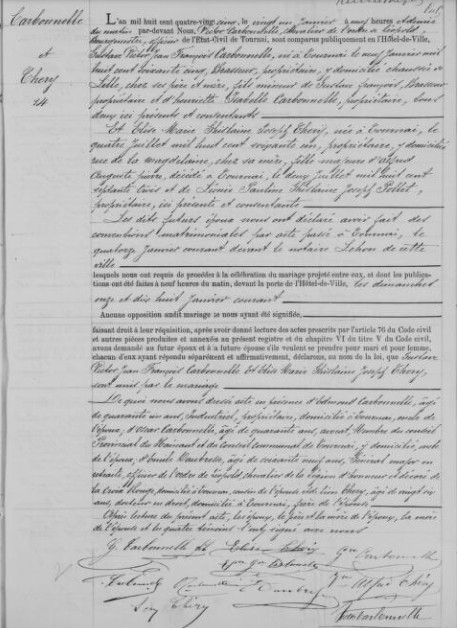 Carbonnelle
et
Thery
14
L'an mil huit cent quatre-vingt cinq, le vingt un Janvier à neuf heures et demie
du matin par-devant Nous, Victor Carbonnelle, chevalier de l'ordre de Léopold,
Bourgmestre, officier de l'État-Civil de Tournai, sont comparus publiquement en l'Hôtel-de-Ville,
Gustave Victor Jean François Carbonnelle, né à Tournai le neuf Janvier mil
huit cent soixante cinq, Brasseur, propriétaire, y domicilié chaussée de
Lille, chez ses père et mère, fils mineur de Gustave François, Brasseur
propriétaire et d'Henriette Isabelle Carbonnelle, propriétaire, tous
deux ici présents et consentants
Et Elise Marie Ghislaine Joseph Thery, née à Tournai, le
quatre Juillet mil huit cent soixante un, propriétaire, y domiciliée,
rue de la Magdelaine, chez sa mère, fille majeure d'Alfred
Auguste Pierre, décédé à Tournai, le deux Juillet mil huit cent
septante trois et de Pauline Ghislaine Joseph Pollet,
propriétaire, ici présente et consentante
Les dits futurs époux nous ont déclaré avoir fait des
conventions matrimoniales par acte passé à Tournai, le
quatorze Janvier courant devant le notaire Lehon de cette
ville
lesquels nous ont requis de procéder à la célébration du mariage projeté entre eux, et dont les publica-
tions ont été faites à neuf heures du matin, devant la porte de l'Hôtel-de-Ville, les dimanches
onze et dix huit Janvier courant
Aucune opposition audit mariage ne nous ayant été signifiée,
faisant droit à leur réquisition, après avoir donné lecture des actes prescrits par l'article 76 du Code civil
et autres pièces produites et annexées au présent registre et du chapitre VI du titre V du Code civil,
avons demandé au futur époux et à la future épouse s'ils veulent se prendre pour mari et pour femme,
chacun d'eux ayant répondu séparément et affirmativement, déclarons, au nom de la loi, que Gustave
Victor Jean François Carbonnelle et Elise Marie Ghislaine Joseph Thery,
sont unis par le mariage
De quoi nous avons dressé acte en présence d'Edmond Carbonnelle, âgé
de quarante un ans, Industriel, propriétaire, domicilié à Tournai, oncle de
l'époux, d'Oscar Carbonnelle, âgé de quarante ans, avocat, Membre du conseil
Provincial du Hainaut et du Conseil communal de Tournai, y domicilié, oncle
de l'époux, d'Emile âgé de soixante neuf ans, Général major en
retraite, officier de l'ordre de Léopold, chevalier de la légion d'honneur et décoré de
la croix domicilié à Tournai, cousin de l'épouse et de Léon Thery, âgé de vingt six
ans, docteur en droit, domicilié à Tournai, frère de l'épouse
Après lecture du présent acte, les époux, le père et la mère de l'époux, la mère
de l'épouse et les quatre témoins l'ont signé avec nous
G Carbonnelle Elise Thery Carbonnelle
Carbonnelle
Vve Alfred Thery
Léon Thery
Carbonnelle